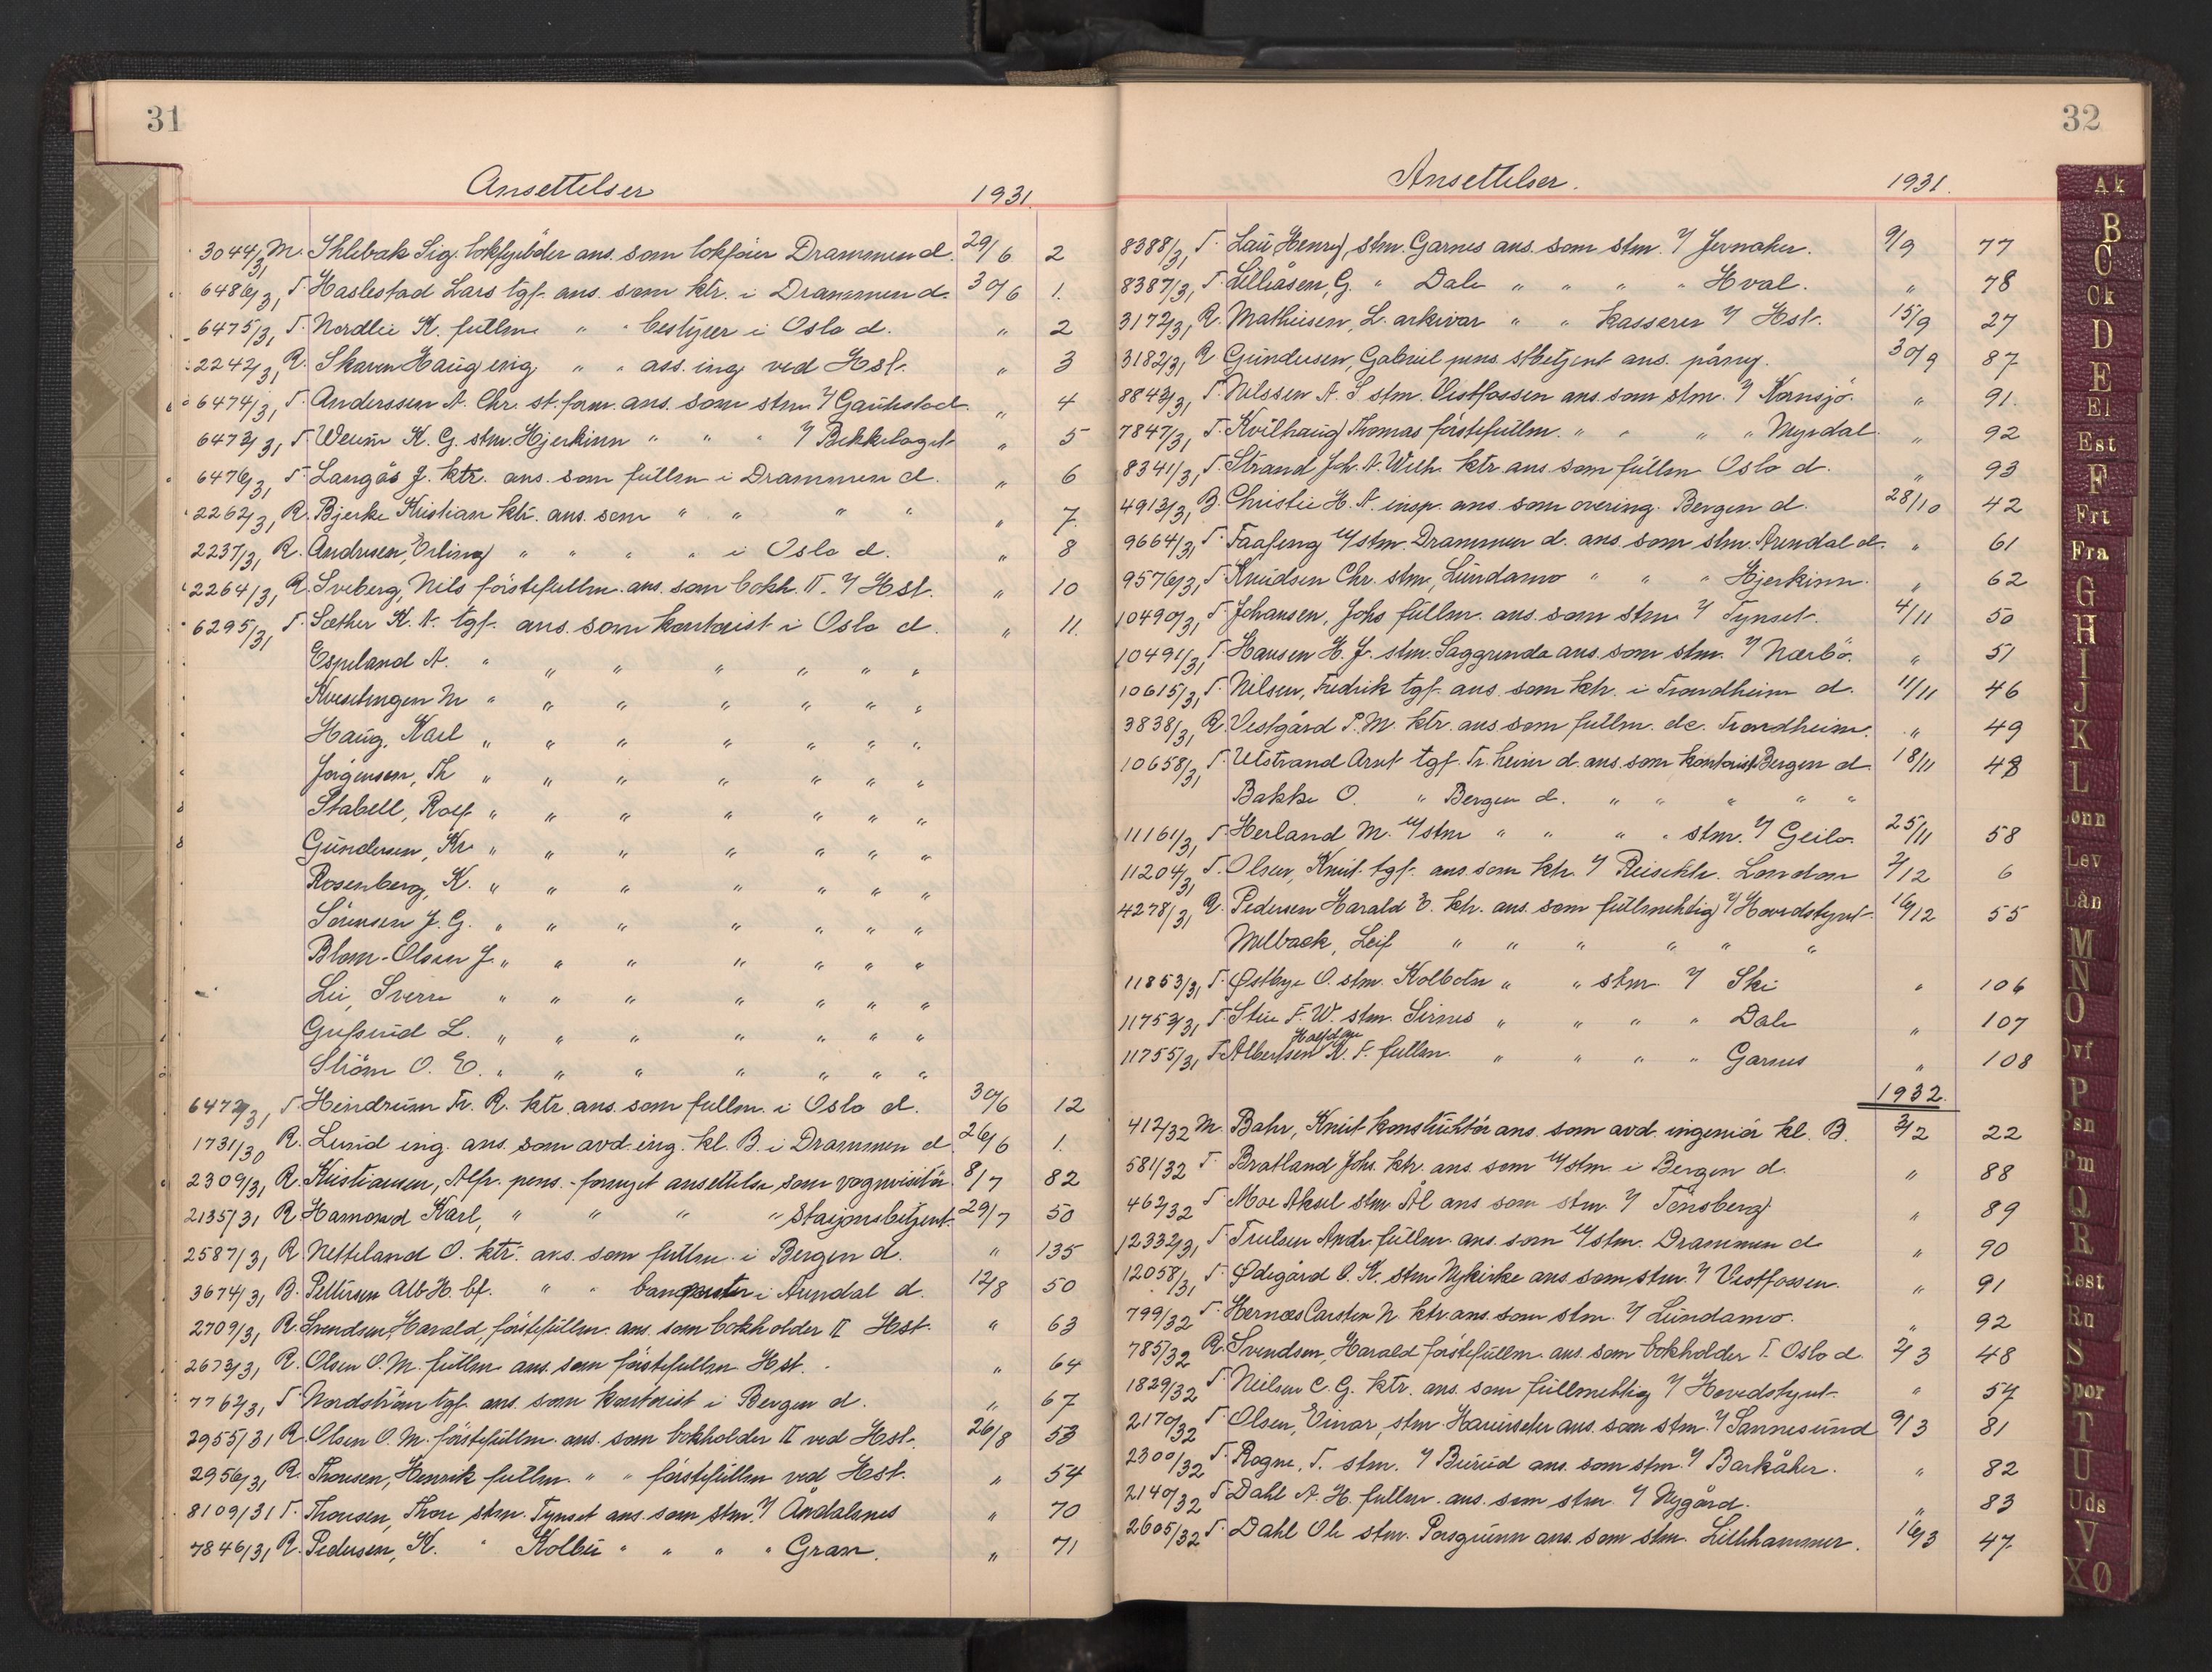 31
Ansettelser 1931.
3044/31 M. Ihlebæk Sig. lokfyrböder ans. som lokförer Drammen d. 29/6 2
6486/31 T. Haslestad Lars tgf. ans. som ktr. i Drammen d. 30/6 1.
6475/31 T. Nordlie K. fullm. " " bestyrer i Oslo d. " 2
2242/31 R. Skaven Haug ing. " " ass. ing. ved Hst. " 3
6474/31 T. Anderssen A. Chr. st.form. ans. som stm. v/ Gaustad. " 4
6473/31 T. K. G. stm. Hjerkinn " " " v/ Bekkelaget " 5
6476/31 T. Langås J. ktr. ans. som fullm i Drammen d. " 6
2262/31 R. Bjerke Kristian ktr. ans. som " " " " " 7.
2237/31 R. Andresen, Erling " " " " i Oslo d. " 8
2264/31 R. Sveberg, Nils förstefullm. ans. som bokh. II. v/ Hst. " 10
6295/31 T. Sæther K. A. tgf. ans. som kontorist i Oslo d. " 11.
Espeland A. " " " " " " "
M " " " " " " "
Haug, Karl " " " " " " "
Jørgensen, Th " " " " " " "
Stabell, Rolf " " " " " " "
Gundersen, Kr " " " " " " "
Rosenberg, K. " " " " " " "
Sörensen J. G. " " " " " " "
Blom-Olsen J. " " " " " " "
Lie, Sverre " " " " " " "
Gulsrud L. " " " " " " "
Ström O. E. " " " " " " "
6472/31 T. Heidrum Tr. R. ktr. ans. som fullm. i Oslo d. 30/6 12
1731/30 R. Lund ing. ans. som avd. ing. kl. B. i Drammen d 26/6 1.
2309/31 R. Kristiansen, Alfr. pens. - fornyet ansettelse som vognvisitör 8/7 82
2135/31 R Karl, " " " " Stasjonsbetjent 29/7 50
2587/31 R. Netteland O. ktr. ans. som fullm. i Bergen d. " 135
3674/31 B. Pettersen Alb H. bf. " " banemester i Arendal d. 12/8 50
2709/31 R. Svendsen, Harald, förstefullm. ans. som bokholder II Hst. " 63
2673/31 R. Olsen O. M. fullm ans. som förstefullm. Hst. " 64
7762/31 T Nordström tgf. ans. som kontorist i Bergen d. " 67
2955/31 R. Olsen O. M. förstefullm. ans. som bokholder II ved Hst. 26/8 53
2956/31 R. Thoresen, Henrik fullm. " " förstefullm ved Hst. " 54
8109/31 T. Thoresen, Thore stm. Tynset ans. som stm. v/ Åndalsnes " 70
7846/31 R. Pedersen, K. " Kolbu " " " " Gran. " 71
32
Ansettelser. 1931.
8388/31 T. Lau Henry, stm. Garnes ans. som stm. v/ Jernaker. 9/9 77
8387/31 T. Lilleåsen, G. " Dale " " " " Hval. " 78
3172/31 R. Mathiesen, L. arkivar " " kasserer v/ Hst. 15/9 27
3182/31 R Gundersen, Gabriel pens. stbetjent ans. påny. 30/9 87
8843/31 T. Nilssen A. S stm. Vestfossen ans. som stm. v/ Kornsjö. " 91.
7847/31 T. Kvilhaug Thomas förstefullm. " " " " Myrdal. " 92
8341/31 T. Strand Joh. A. Wilh. ktr. ans som fullm Oslo d. " 93
4913/31 B. Christie H. A. insp. ans. som overing. Bergen d. 28/10 42
9664/31 T. Faafeng u/stm. Drammen d. ans. som stm. Arendal d. " 61
9576/31 T. Knudsen Chr. stm, Lundamo " " " Hjerkinn. " 62
10490/31 T. Johansen, Johs fullm. ans. som stm. v/ Tynset. 4/11 50
10491/31 T. Hansen H. J. stm. Saggrenda ans. som stm. v/ Nærbö. " 51
10615/31 T. Nilsen, Fredrik tgf. ans. som ktr. i Trondheim d. 11/11 46
3838/31 R. Vestgård P. M. ktr. ans. som fullm. dc. Trondheim. " 49
10658/31 T. Utstrand Arnt tgf. Tr.heim d. ans. som kontorist Bergen d. 18/11 48
Bakke O. " Bergen d. " " " " "
11161/31 T. Herland M. u/stm " " " " stm. v/ Geilo. 25/11 58
11204/31 T. Olsen, Knut tgf. ans. som ktr. v/ Reisektr. London 2/12 6
4278/31 R. Pedersen Harald E. ktr. ans. som fullmektig v/ Hovedstyret. 16/12 55
Melbæk, Leif " " " " " "
11853/31 T. Østbye O. stm. Kolbotn " " stm. v/ Ski " 106
11753/31 T. Stein F. W. stm. Sirnes " " " " Dale " 107
Halfdan
11755/31 T. Albertsen N. F. fullm. " " " " Garnes " 108
1932.
412/32 M. Bahr, Knut konstruktör ans. som avd. ingeniör kl. B. 3/2 22
581/32 T. Bratland Johs. ktr. ans. som u/stm i Bergen d. " 88
462/32 T. Moe Aksel stm Ål ans som stm. v/ Tönsberg " 89
12332/31 T. Trulsen Andr. fullm. ans. som u/stm. Drammen d " 90
12058/31 T. Ødegård O. K. stm Nykirke ans. som stm. v/ Vestfossen. " 91
799/32 T. Hernæs Carsten N. ktr. ans. som stm. v/ Lundamo. " 92
785/32 R. Svendsen, Harald förstefullm. ans. som bokholder I. Oslo d. 2/3 48
1829/32 T. Neilsen C. G. ktr. ans. som fullmektig v/ Hovedstyret " 57
2170/32 T. Olsen, Einar, stm. Hauerseter ans. som stm. v/ Sannesund 9/3 81
2300/32 T. Rogne, T. stm. v/ Burud ans. som stm. v/ Barkåker. " 82
2140/32 T. Dahl A. H. fullm. ans. som stm. v/ Nygård. " 83
2605/32 T. Dahl Ole stm. Porsgrunn ans. som stm. Lillehammer. 16/3 47
Ak
B
C
Ck
D
E
El
Est
F
Frt
Fra
G
H
I
J
K
L
Lønn
Lev
Lån
M
N
O
Ovf
P
Psn
Pm
Q
R
Rest
Ru
S
Spor
T
U
Uds
V
XØ